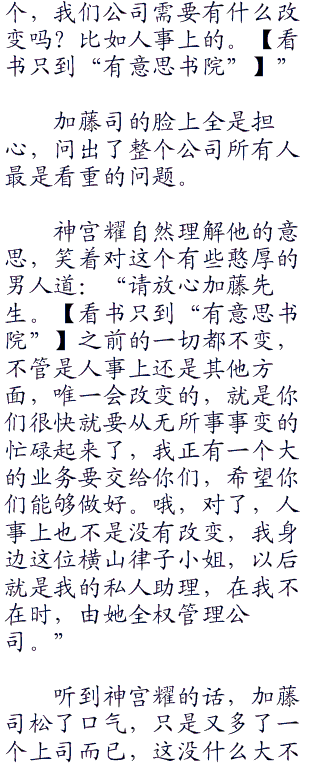 个，我们公司需要有什么改
变吗？比如人事上的。【看
书只到“有意思书院”】”
加藤司的脸上全是担
心，问出了整个公司所有人
最是看重的问题。
神宫耀自然理解他的意
思，笑着对这个有些憨厚的
男人道：“请放心加藤先
生。【看书只到“有意思书
院”】之前的一切都不变，
不管是人事上还是其他方
面，唯一会改变的，就是你
们很快就要从无所事事变的
忙碌起来了，我正有一个大
的业务要交给你们，希望你
们能够做好。哦，对了，人
事上也不是没有改变，我身
边这位横山律子小姐，以后
就是我的私人助理，在我不
在时，由她全权管理公
司。”
听到神宫耀的话，加藤
司松了口气，只是又多了一
个上司而已，这没什么大不